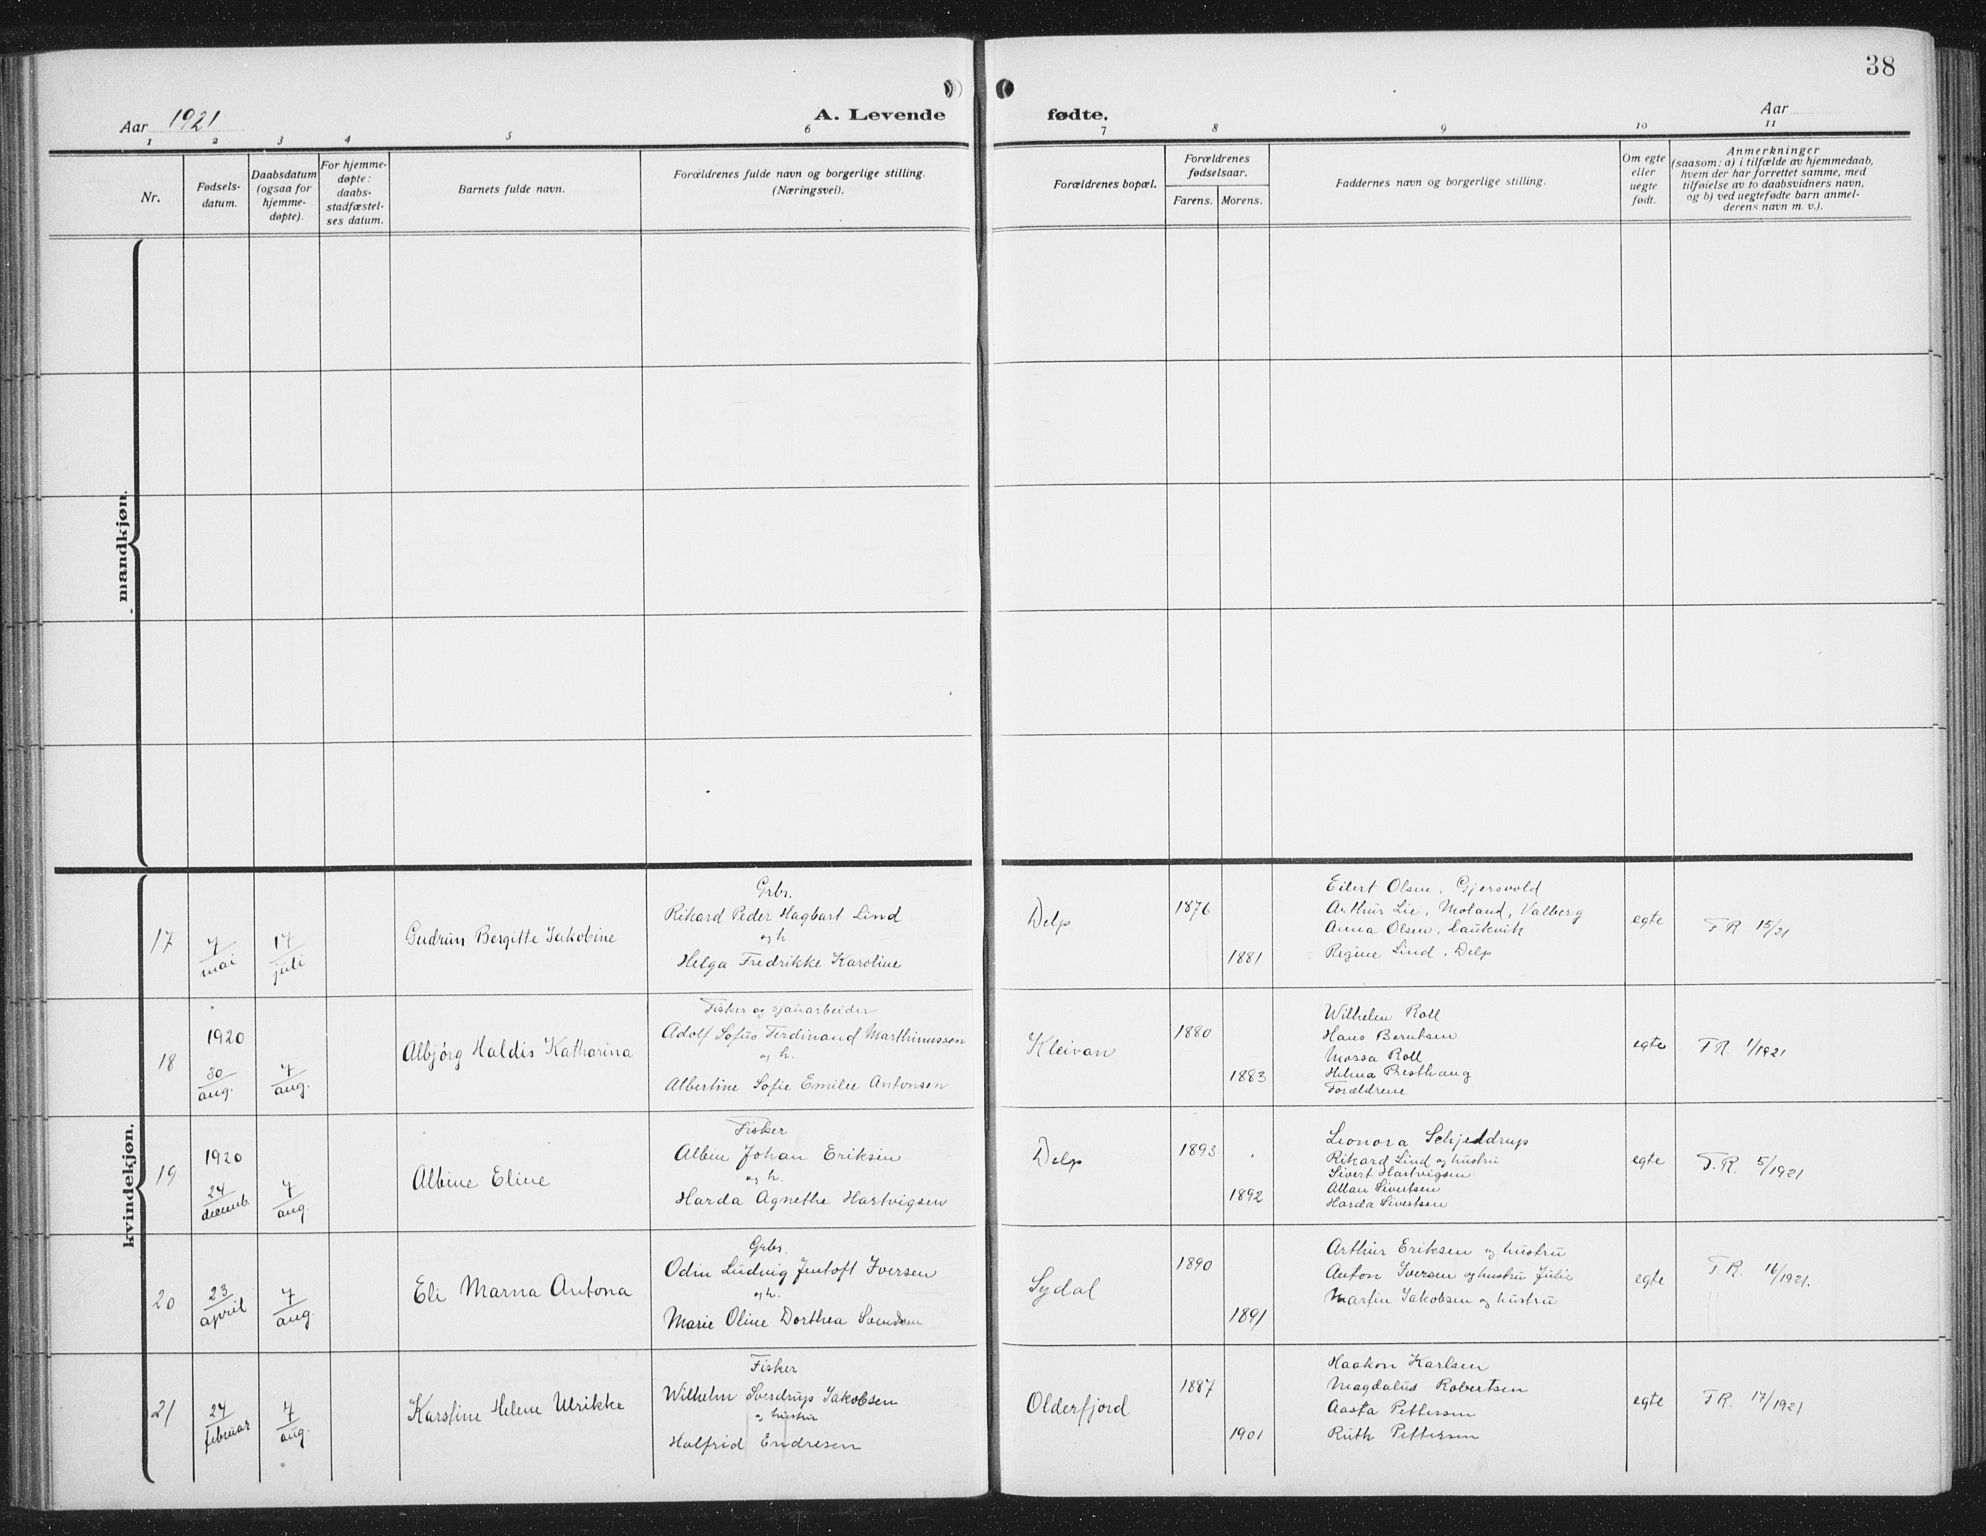 38
Aar 1921
A. Levende fødte.
Aar
1 2 3 4 5 6 7 8 9 10 11
Nr.
Fødsels-
datum.
Daabsdatum
(ogsaa for
hjemme-
døpte).
For hjemme-
døpte:
daabs-
stadfæstel-
ses datum.
Barnets fulde navn.
Forældrenes fulde navn og borgerlige stilling.
(Næringsvei).
Forældrenes bopæl.
Forældrenes
fødselsaar.
Farens. Morens.
Faddernes navn og borgerlige stilling.
Om egte
eller
uegte
født.
Anmerkninger
(saasom: a) i tilfælde av hjemmedaab,
hvem der har forrettet samme, med
tilføielse av to daabsvidners navn,
og b) ved uegtefødte barn anmel-
derens navn m. v.).
mandkjøn.
kvindekjøn.
17
7
mai
17
juli
Gudrun Bergitte Jakobine
Grbr.
Rikard Peder Hagbart Lind
og h.
Helga Fredrikke Karoline
Delp
1876
1881
Eilert Olsen, Gjersvold
Arthur Lie, Moland, Valberg
Anna Olsen, Laukvik
Regine Lind, Delp
egte
F R 15/21
18
1920
30
aug.
7
aug.
Albjørg Haldis Katharina
Fisker og sjauarbeider
Adolf Sofus Ferdinand Marthinussen
og h.
Albertine Sofie Emilie Antonsen
Kleivan
1880
1883
Wilhelm Roll
Hans Berntsen
Morsa Roll
Helma Presthaug
Forældrene
egte
F.R. 1/1921
19
1920
24
decemb.
7
aug.
Albine Eline
Fisker
Albin Johan Eriksen
og h.
Harda Agnethe Hartvigsen
Delp
1893
1892
Leonora Schjeldrup
Rikard Lind og hustru
Sivert Hartvigsen
Allan Sivertsen
Harda Sivertsen
egte
F.R. 5/1921
20
23
april
7
aug.
Eli Marna Antona
Grbr.
Odin Ludvig Jentoft Iversen
og h.
Marie Oline Dorthea Svendsen
Sydal
1890
1891
Arthur Eriksen og hustru
Anton Iversen og hustru Julie
Martin Jakobsen og hustru
egte
F.R. 16/1921.
21
24
februar
7
aug.
Karstine Helene Ulrikke
Fisker
Wilhelm Sverdrup Jakobsen
og hustru
Halfrid Endresen
Olderfjord
1887
1901
Haakon Karlsen
Magdalus Robertsen
Aasta Pettersen
Ruth Pettersen
egte
F.R. 17/1921